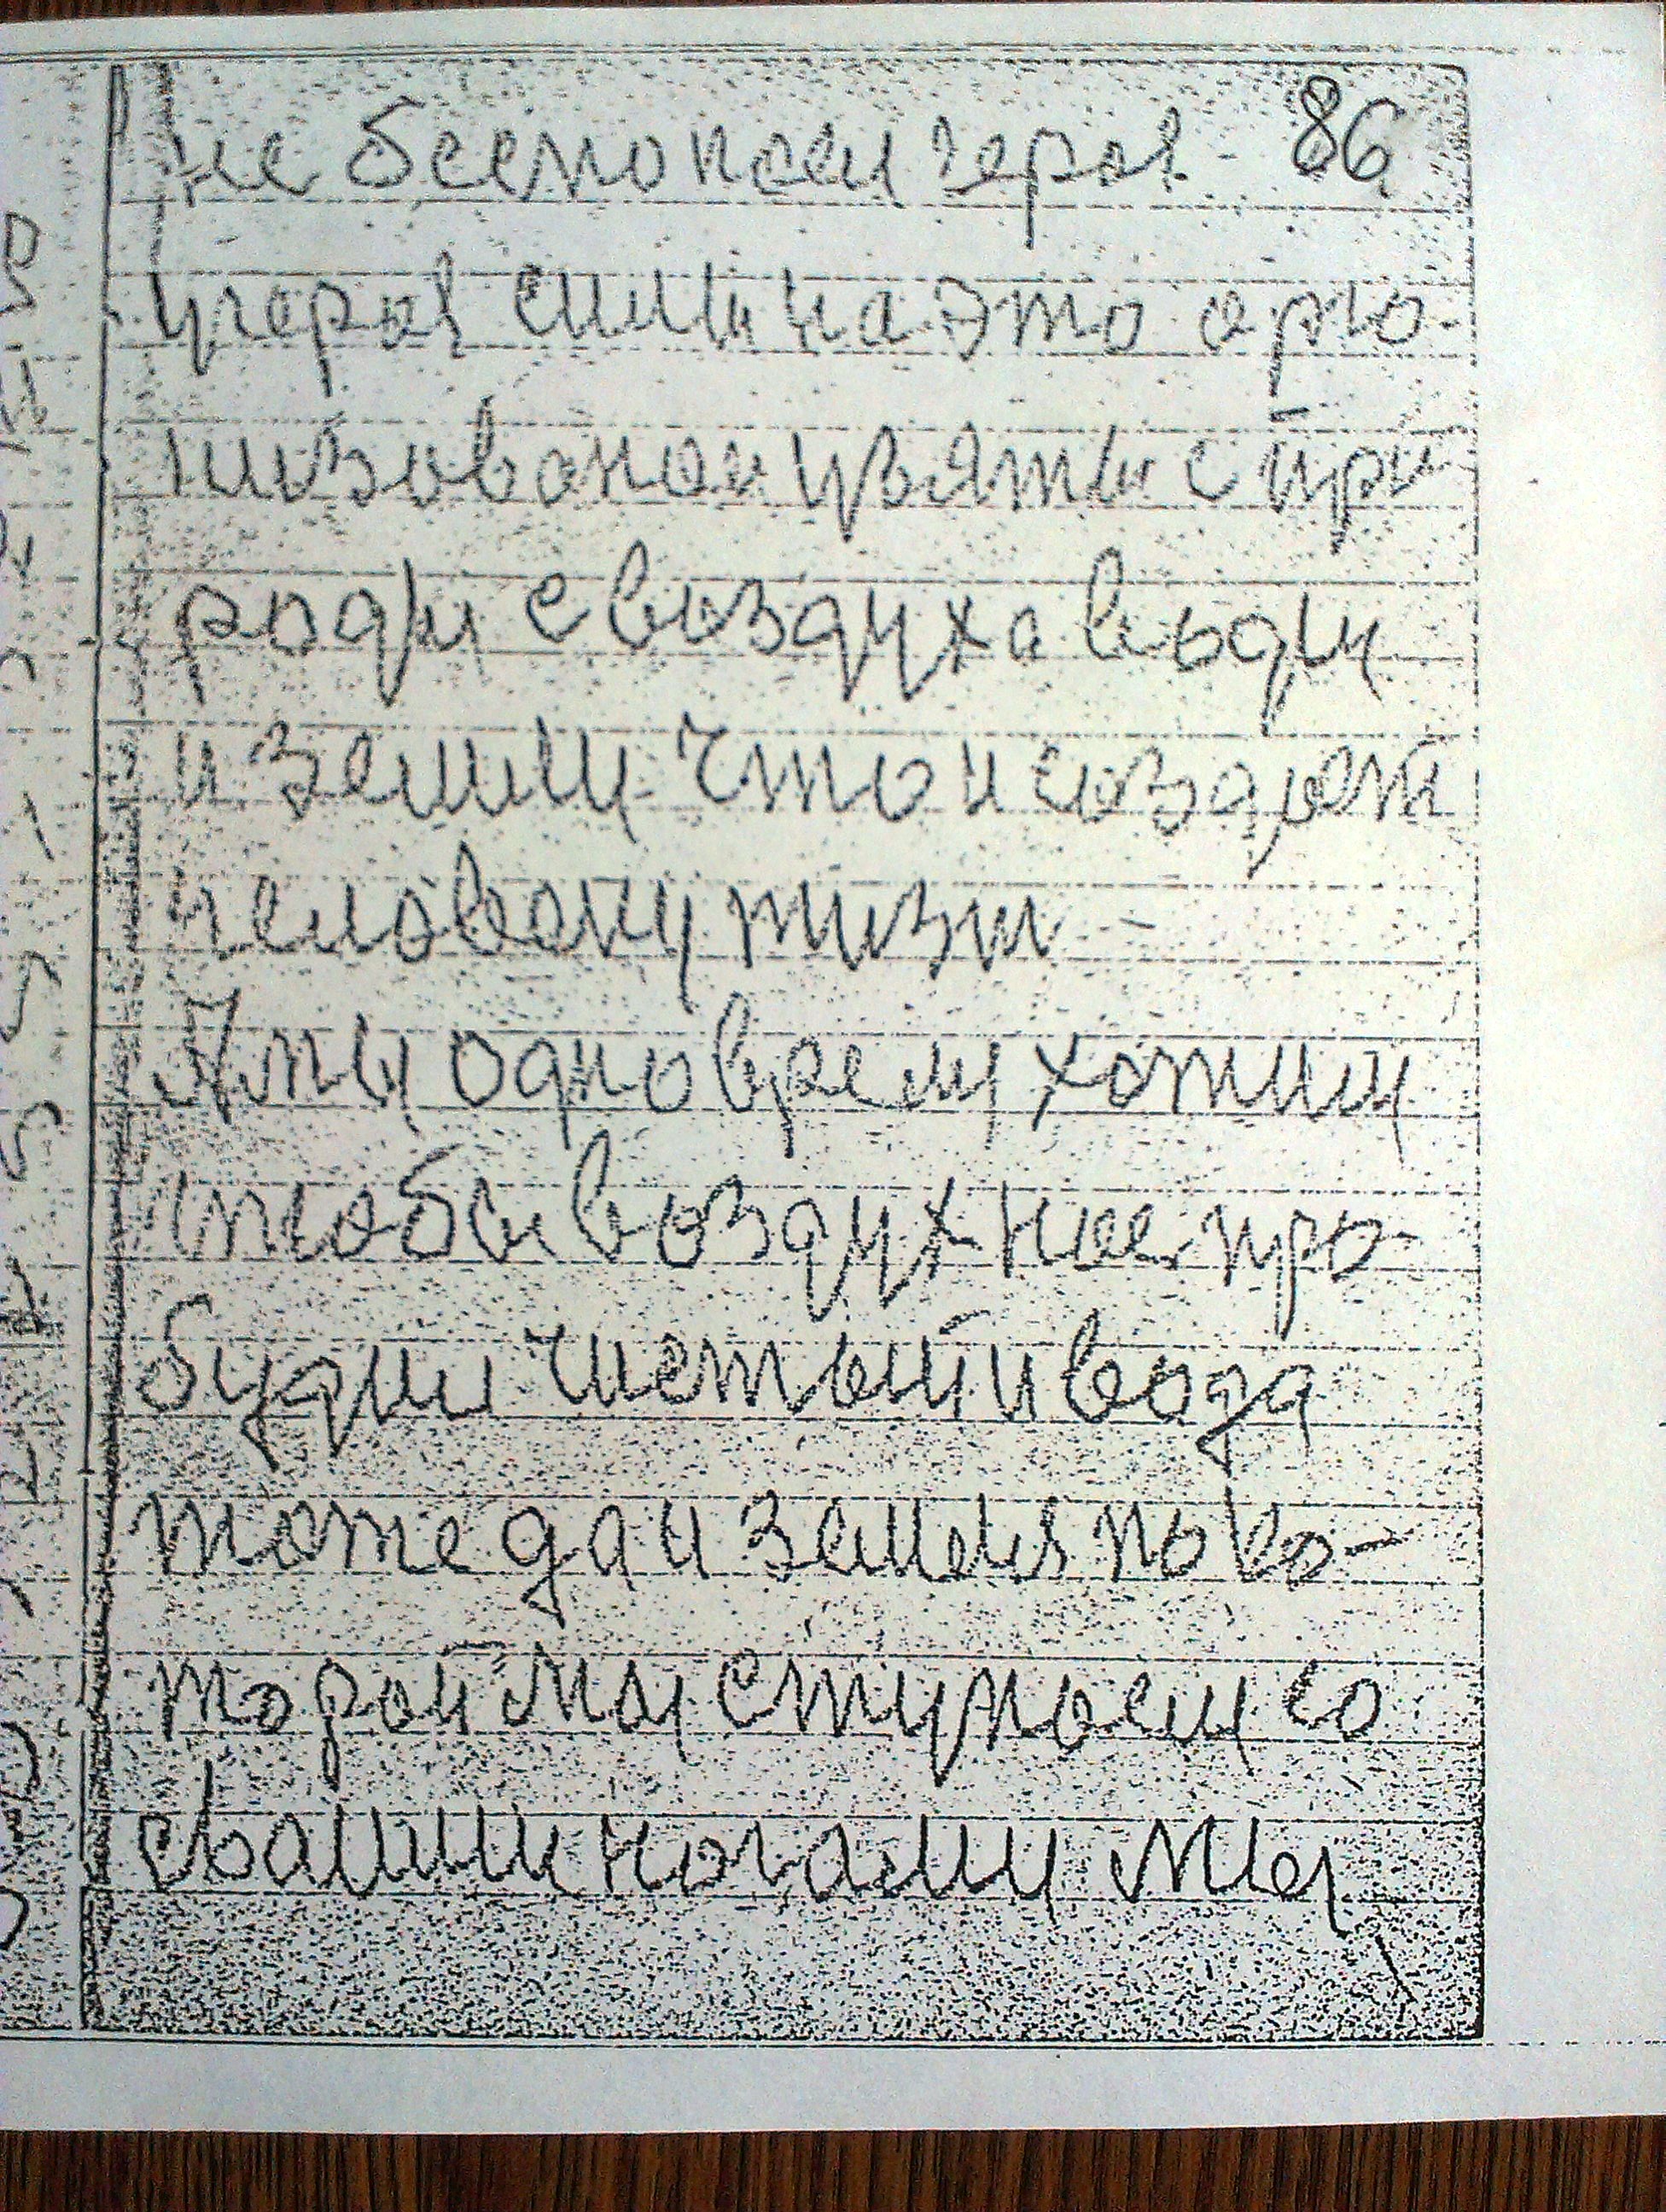 не беспокем геров - 86
угерав сили на это орто-
низованои увяти с при
роди с воздуха води
и земли что и создает
человеку жизи -
А ми одно время хотим
чтоби воздух нас про-
будил чистый и вода
тоже да и земля по ко-
торой ми ступаем со
сваими ногами ми